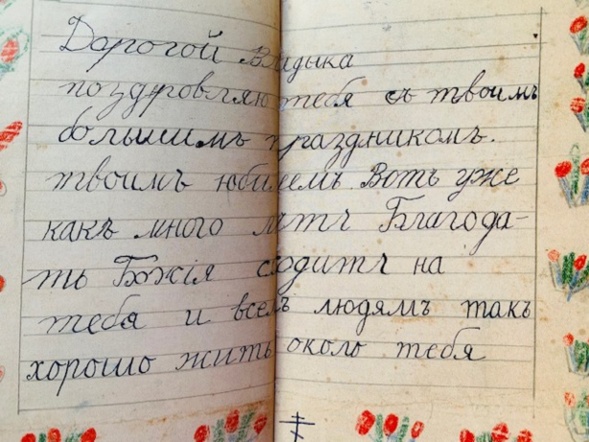 Дорогой Владыка
поздуовляю тебя съ твоимъ
большимъ праздникомъ.
твоимъ юбилеемъ Вотъ уже
какъ много лѣтъ Благода-
ть Божія сходитъ на
тебя и всемъ людямъ такъ
хорошо жить около тебя